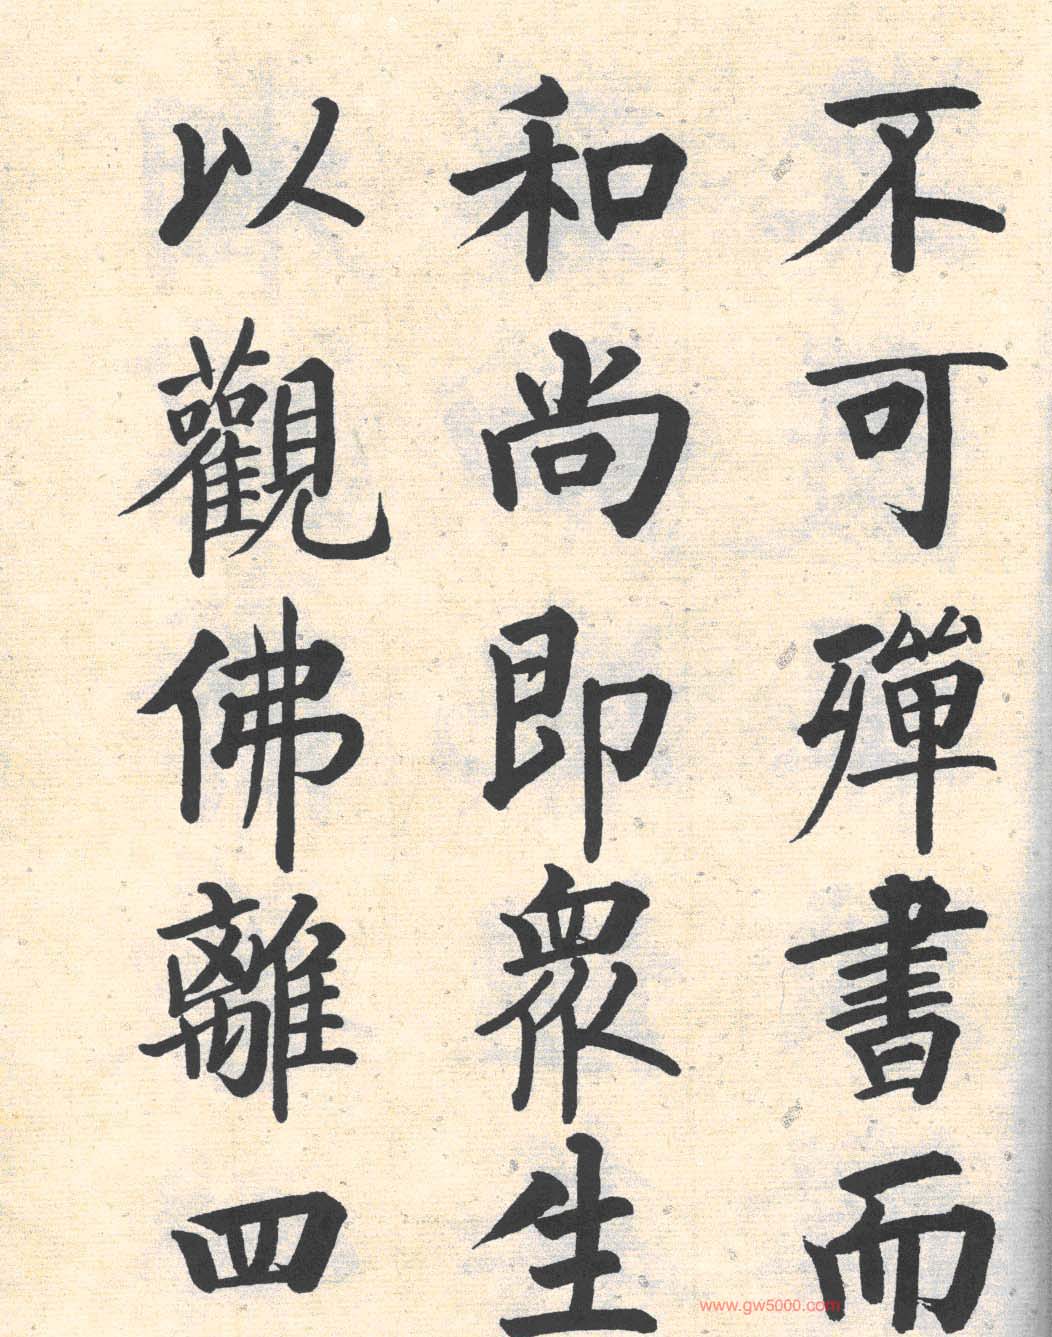 不可殫書而
和尚即衆生
以觀佛離四
www.gw5000.com